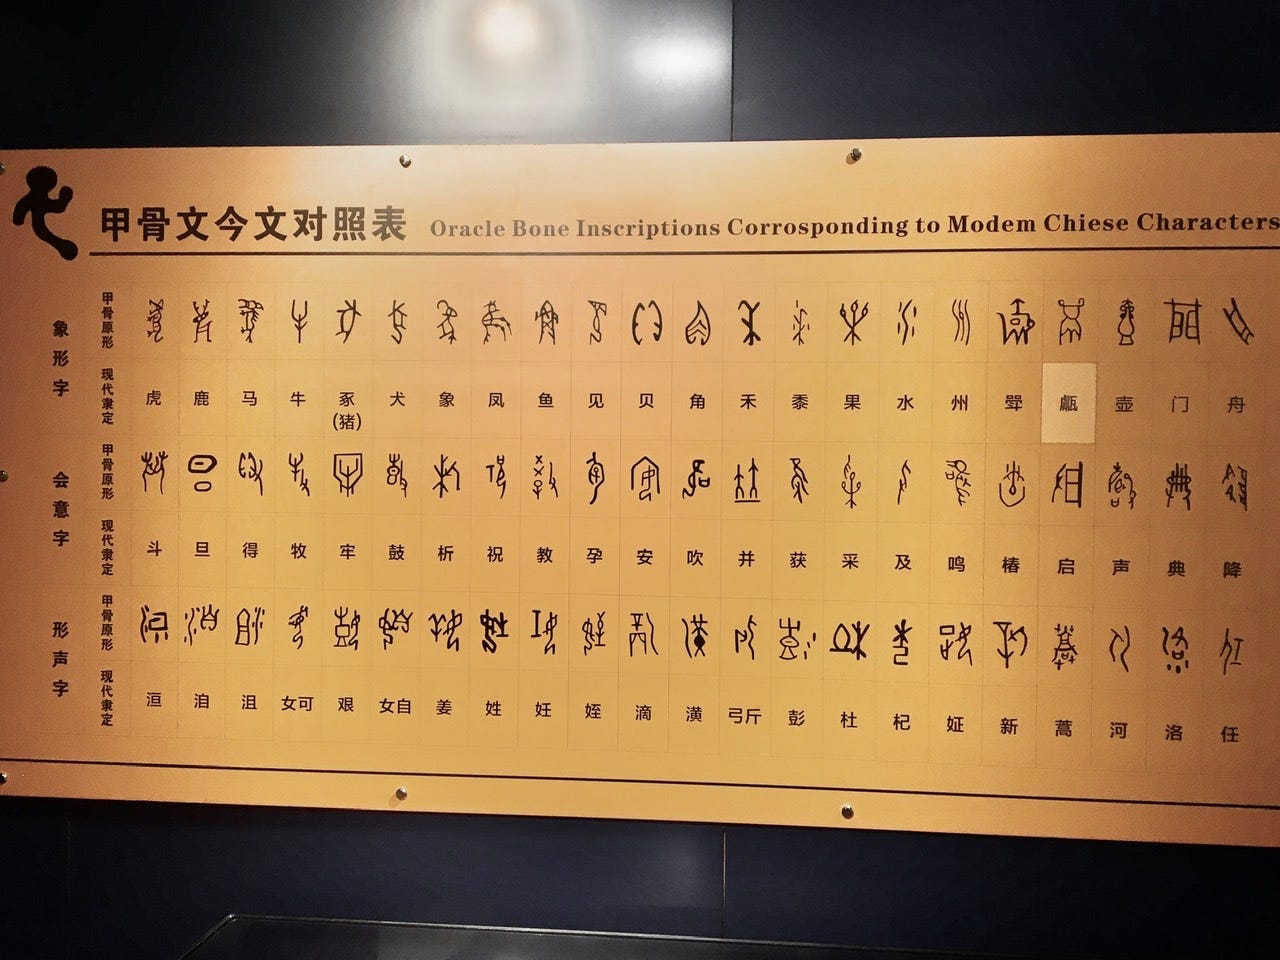 甲骨文今文对照表 Oracle Bone Inscriptions Corrosponding to Modem Chiese Characters
象形字
甲骨原形
现代隶定 虎 鹿 马 牛 豕(猪) 犬 象 凤 鱼 见 贝 角 禾 黍 果 水 州 斝 甗 壶 门 舟
会意字
甲骨原形
现代隶定 斗 旦 得 牧 牢 鼓 析 祝 教 孕 安 吹 并 获 采 及 鸣 椿 启 声 典 降
形声字
甲骨原形
现代隶定 洹 洎 沮 女可 艰 女自 姜 姓 妊 姪 滴 潢 弓斤 彭 杜 杞 姃 新 蒿 河 洛 任